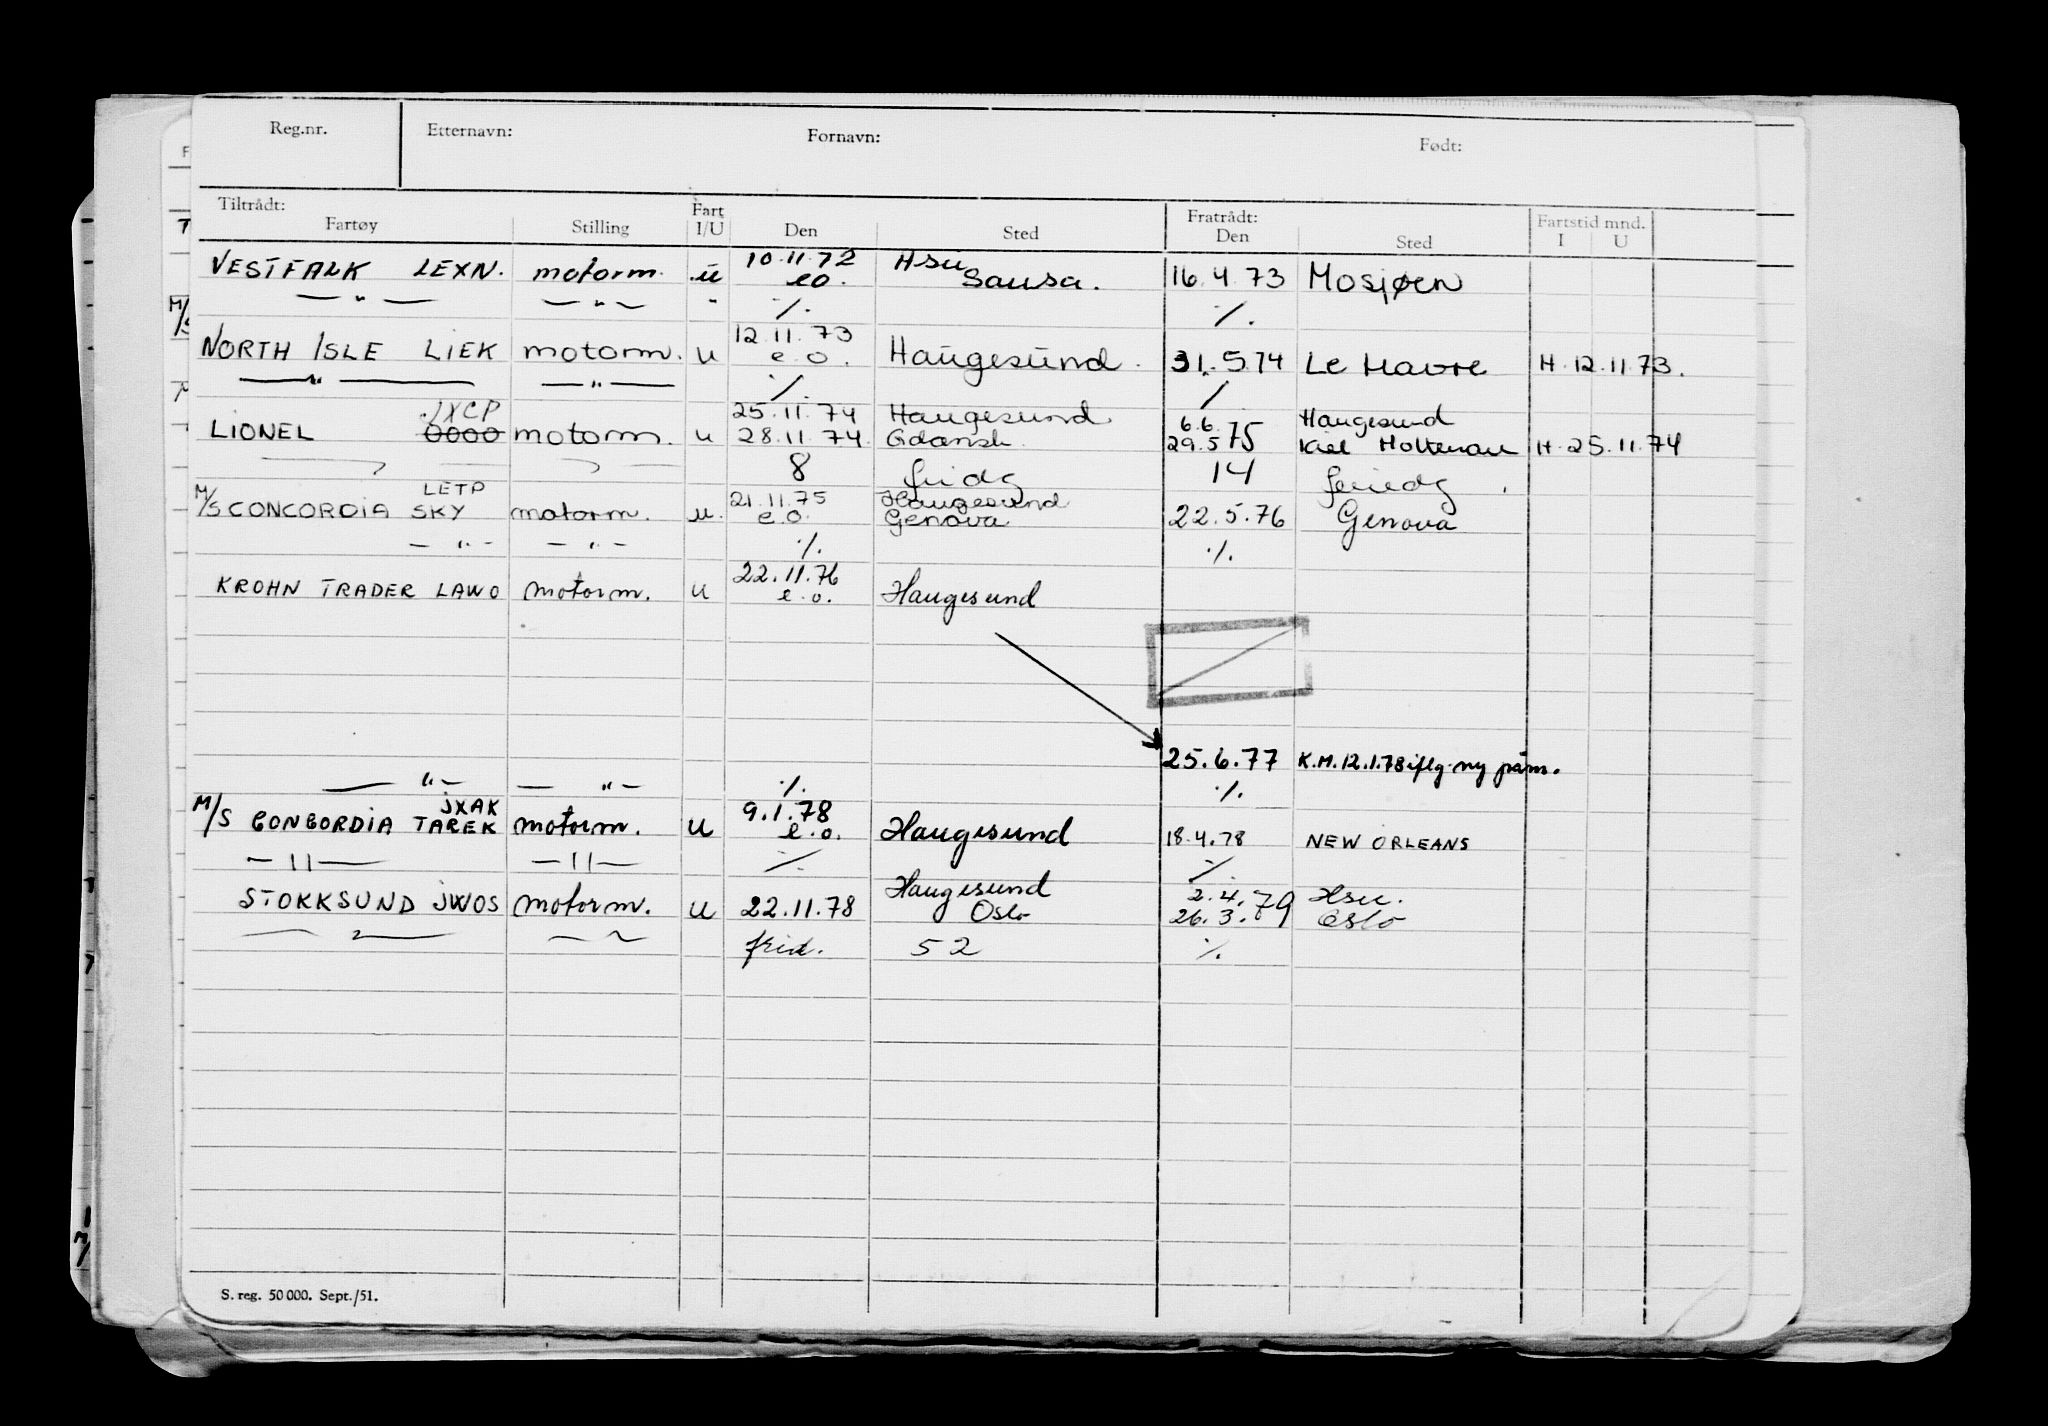 Reg.nr. Etternavn: Fornavn: Født:
Tiltrådt: Fart Fratrådt: Fartstid mnd.
Fartøy Stilling I/U Den Sted Den Sted I U
10.11.72 Hsu
VESTFALK LEXN. motorm. u eo. Sousa. 16.4.73 Mosjøen
— " — — " — " ./. ./.
12.11.73
NORTH ISLE LIEK motorm. u e.o. Haugesund. 31.5.74 Le Havre H.12.11.73.
— " — — " — ./. /
JXCP 25.11.74 Haugesund 6.6. Haugesund
LIONEL 0000 motorm. u 28.11.74. Gdansk. 29.5.75 Kiel Holtenau H.25.11.74
8 14
LETP 21.11.75 Haugesund
M/S CONCORDIA SKY motorm. u. e.o. Genova 22.5.76 Genova
— " — — " — ./. ./.
22.11.76
KROHN TRADER LAWO motorm. u e.o. Haugesund
25.6.77 K.M.12.1.78 iflg. ny
— " — — " — ./. ./.
JXAK 9.1.78
M/S CONCORDIA TAREK motorm. u e.o. Haugesund 18.4.78 NEW ORLEANS
— " — — " — ./. ./.
Haugesund 2.4. Hsu.
STOKKSUND JWOS motorm. u 22.11.78 Oslo 26.3.79 Oslo
frid. 52 ./.
S. reg. 50 000. Sept./51.